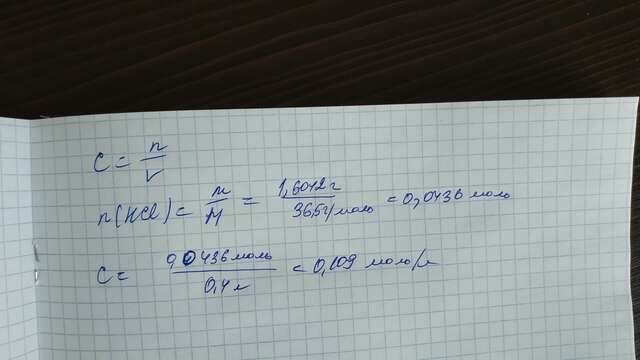 C = n/V
n(HCl) = m/M = 1,6042 г/36,5 г/моль = 0,0436 моль
C = 0,0436 моль/0,4 л = 0,109 моль/л